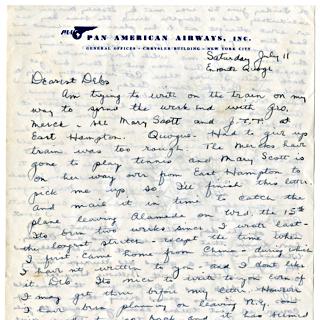 PAN AMERICAN AIRWAYS, INC.
GENERAL OFFICES · CHRYSLER BUILDING · NEW YORK CITY
Saturday July 11
Enroute Quogue
Dearest Debs
Am trying to write on the train on my
way to spend the week end with Geo.
Merck - see Mary Scott and J.T.T. at
East Hampton. Quogue. Had to give up
train was too rough. The Mercks have
gone to play tennis and Mary Scott is
on her way over from East Hampton to
pick me up so I'll finish this letter
and mail it in time to catch the
plane leaving Alameda on Wed. the 15th
Its been two weeks since I wrote last -
the longest stretch - except the time when
I first came home from China - during which
I have not written to you - and I don't like
it Deb. Its nice to write to you
I may get there before my letter. However
I have been planning on leaving N.Y.
and it has